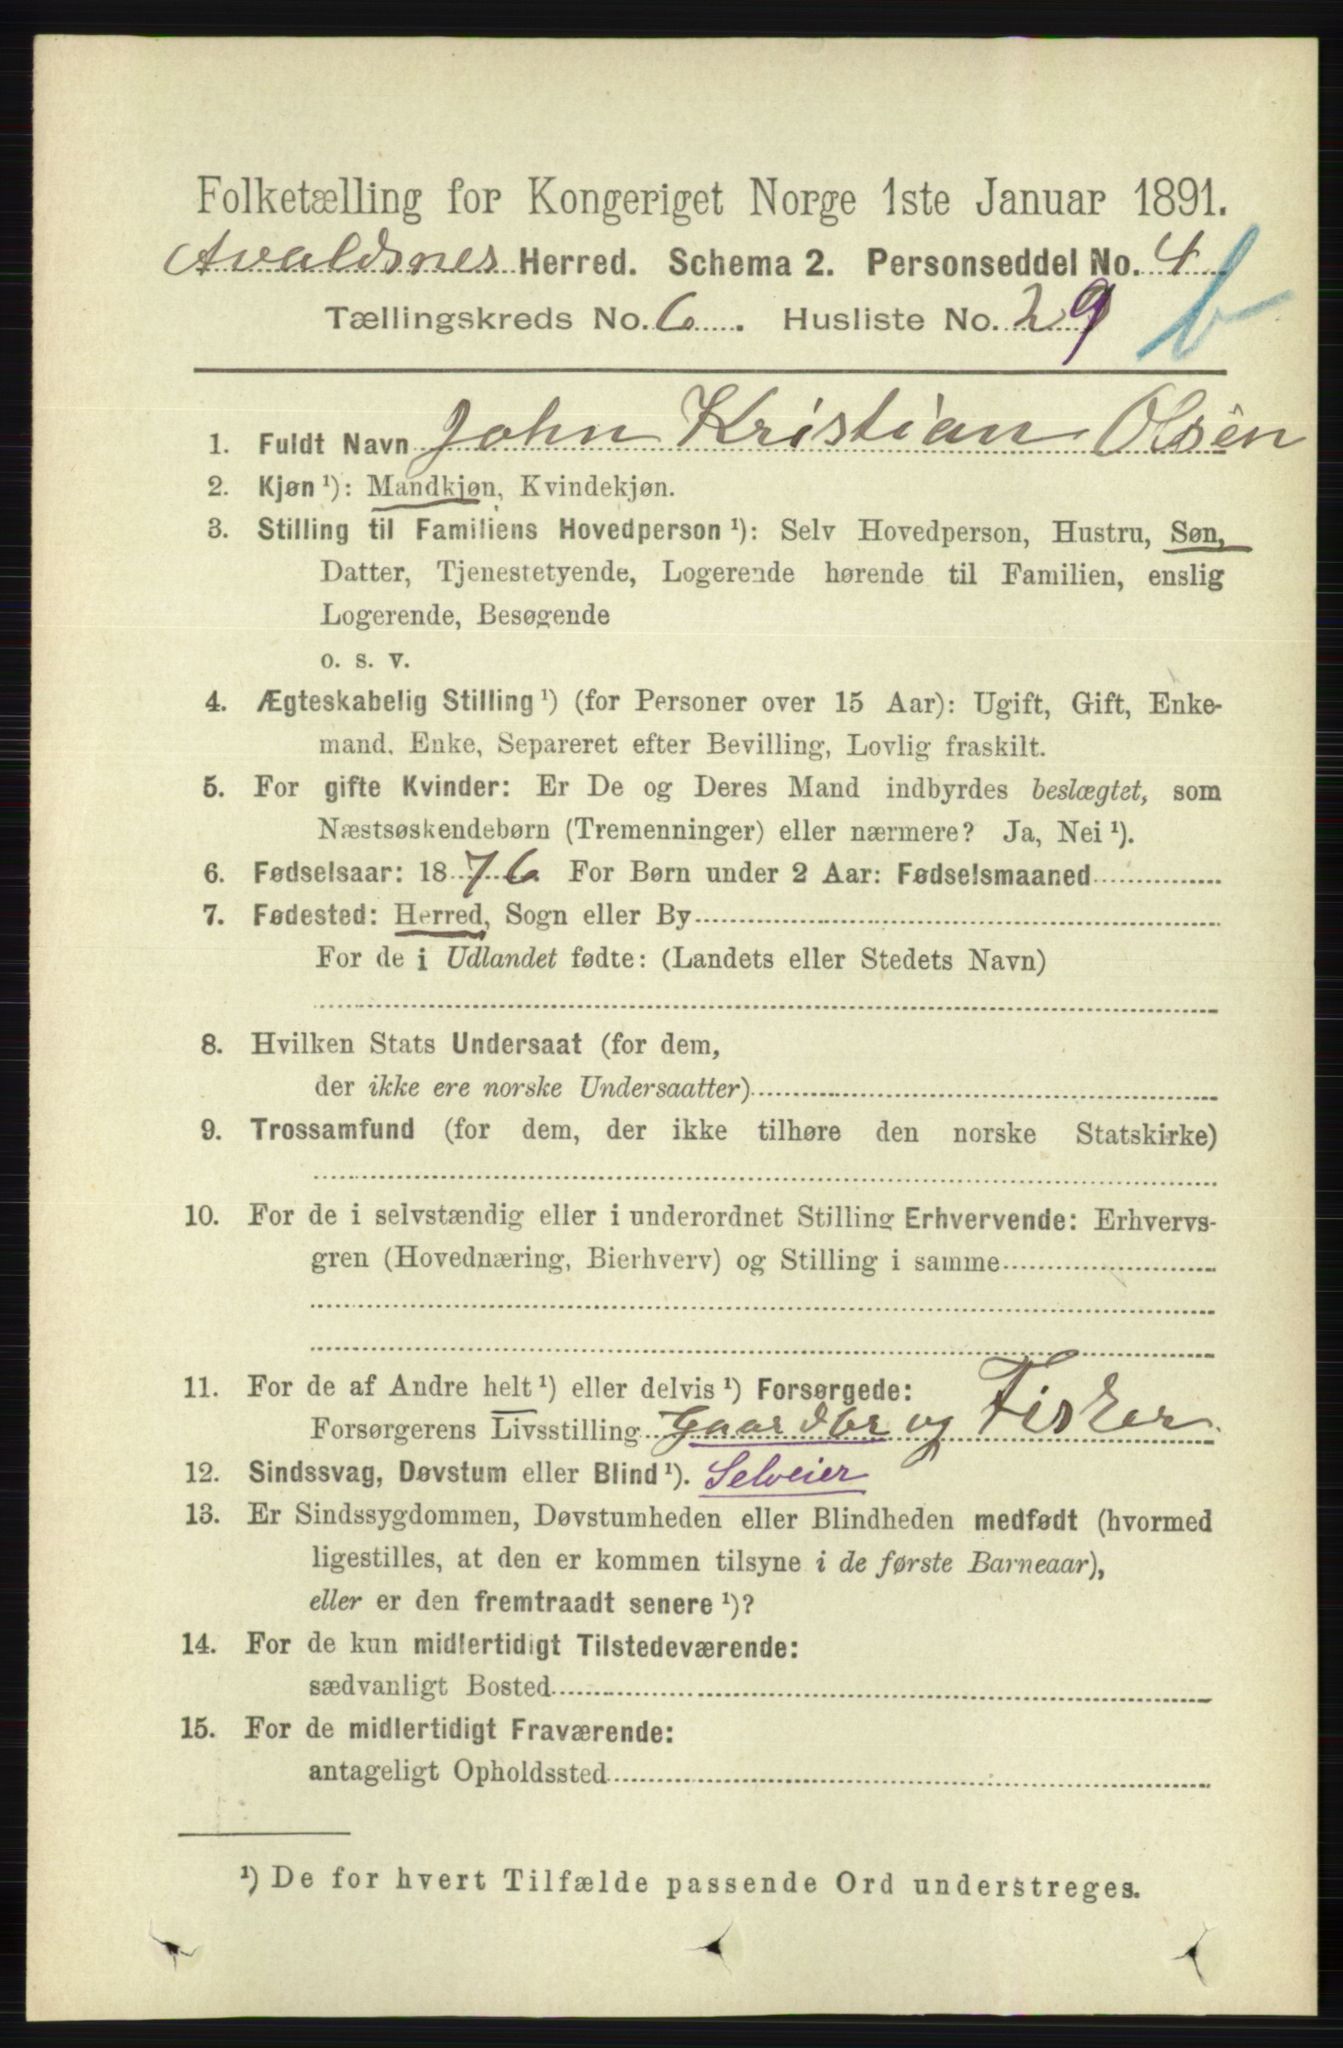 Folketælling for Kongeriget Norge 1ste Januar 1891.
Avaldsnes Herred. Schema 2. Personseddel No. 4
Tællingskreds No. 6. Husliste No. 29 b
1. Fuldt Navn John Kristian Olsen
2. Kjøn ¹): Mandkjøn, Kvindekjøn.
3. Stilling til Familiens Hovedperson ¹): Selv Hovedperson, Hustru, Søn,
Datter, Tjenestetyende, Logerende hørende til Familien, enslig
Logerende, Besøgende
o. s. v.
4. Ægteskabelig Stilling ¹) (for Personer over 15 Aar): Ugift, Gift, Enke-
mand, Enke, Separeret efter Bevilling, Lovlig fraskilt.
5. For gifte Kvinder: Er De og Deres Mand indbyrdes beslægtet, som
Næstsøskendebørn (Tremenninger) eller nærmere? Ja, Nei ¹).
6. Fødselsaar: 1876. For Børn under 2 Aar: Fødselsmaaned
7. Fødested: Herred, Sogn eller By
For de i Udlandet fødte: (Landets eller Stedets Navn)
8. Hvilken Stats Undersaat (for dem,
der ikke ere norske Undersaatter)
9. Trossamfund (for dem, der ikke tilhøre den norske Statskirke)
10. For de i selvstændig eller i underordnet Stilling Erhvervende: Erhvervs-
gren (Hovednæring, Bierhverv) og Stilling i samme
11. For de af Andre helt ¹) eller delvis ¹) Forsørgede:
Forsørgerens Livsstilling Gaardbr og Fisker
12. Sindssvag, Døvstum eller Blind ¹). Selveier
13. Er Sindssygdommen, Døvstumheden eller Blindheden medfødt (hvormed
ligestilles, at den er kommen tilsyne i de første Barneaar),
eller er den fremtraadt senere ¹)?
14. For de kun midlertidigt Tilstedeværende:
sædvanligt Bosted
15. For de midlertidigt Fraværende:
antageligt Opholdssted
¹) De for hvert Tilfælde passende Ord understreges.